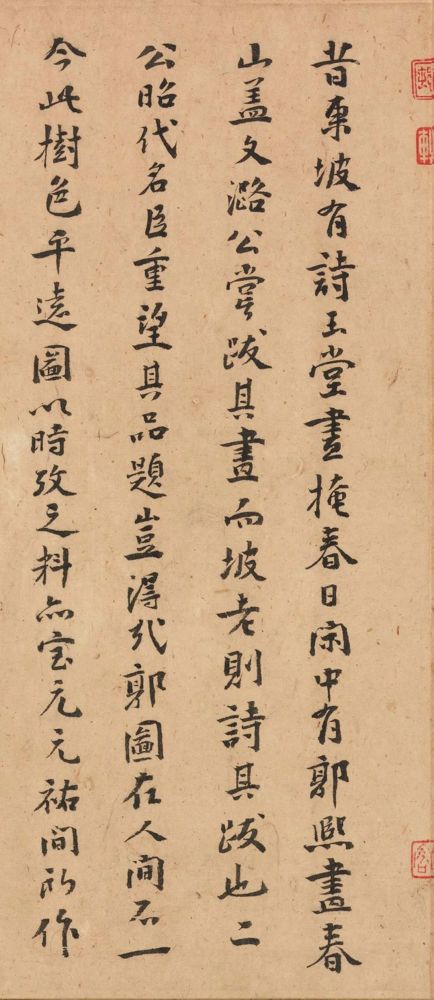 昔東坡有詩玉堂晝掩春日閑中有郭熙畫春
山盖文潞公嘗跋其畫而坡老則詩其跋也二
公昭代名臣重望其品題豈浔欤郭圖在人間不一
今此樹色平逺圖以時攷之料亦宝元元祐間所作